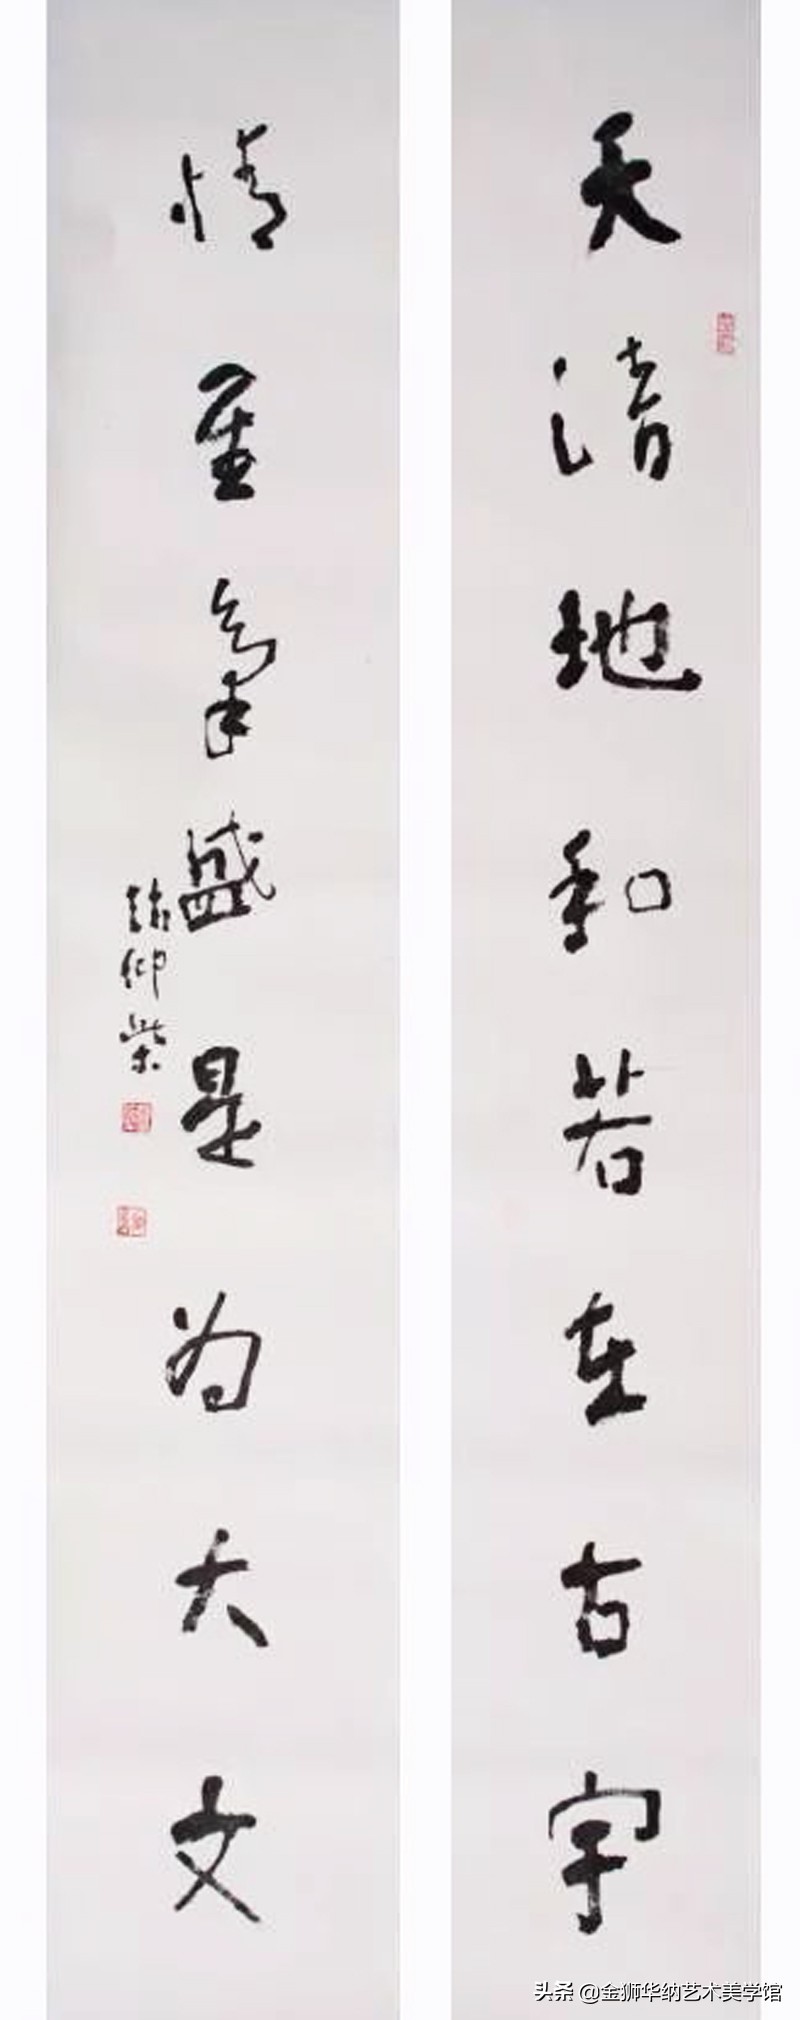 天清地和若在古宇
情至氣盛是为大文
仰柴
头条 @金狮华纳艺术美学馆